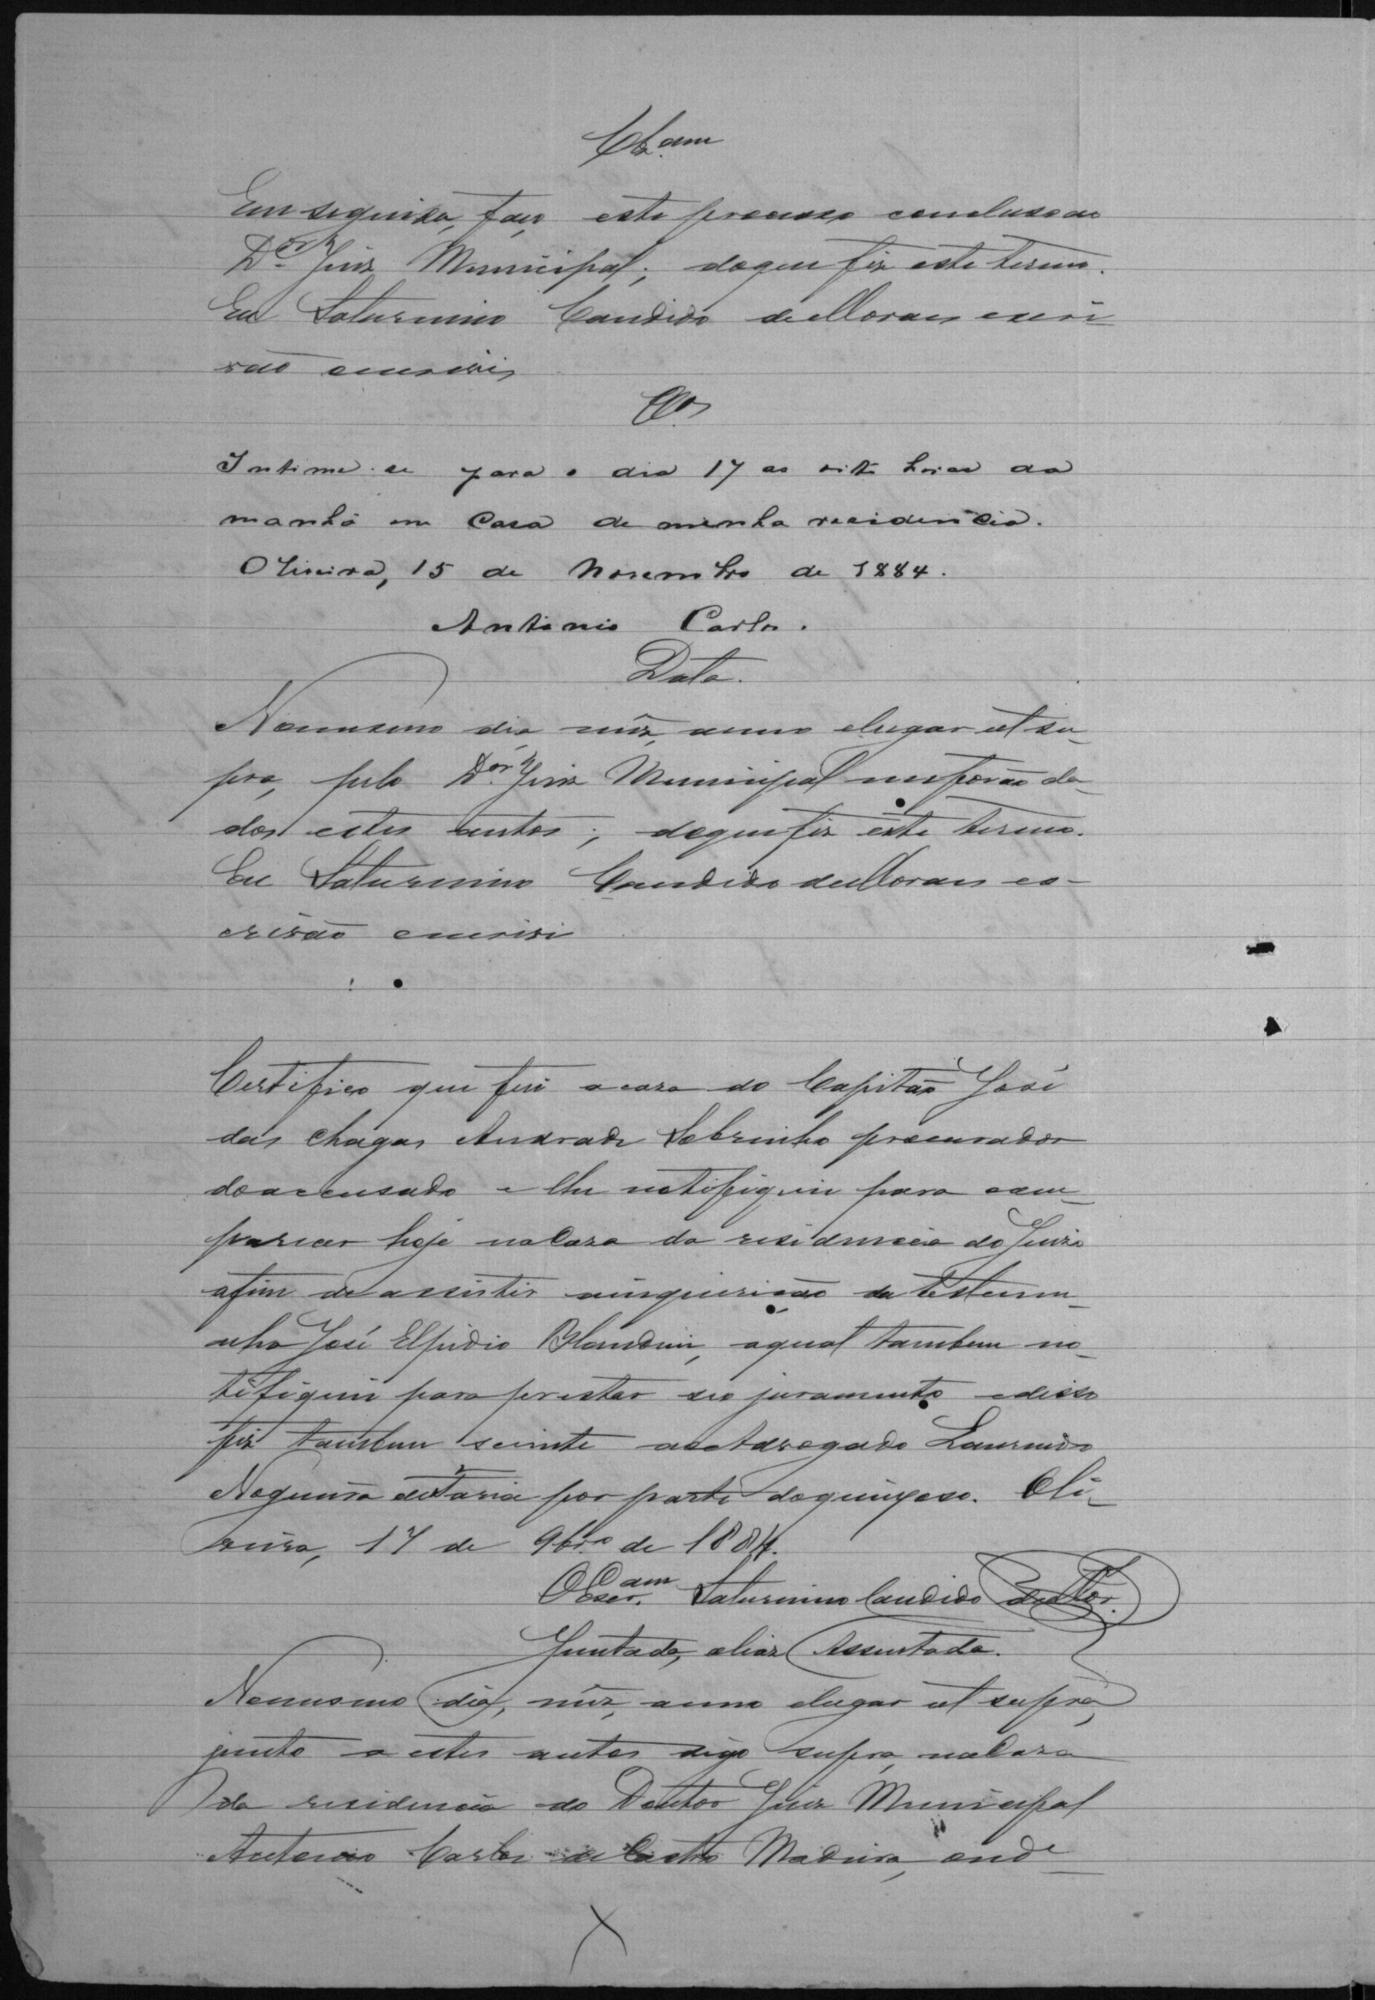 Clz.am
Em seguida, faço este processo concluso ao
D.or Juiz Municipal; doque fiz este termo.
Eu Saturnino Candido de Moraes escri-
vão escrivi
Clos
Intime-se para o dia 17 as oito horas da
manhã em casa de minha residencia.
Oliveira, 15 de Novembro de 1884.
Antonio Carlos.
Data.
Nomesmo dia, mêz, anno elugar ut su-
pra, pelo D.or Juiz Municipal meforão da-
dos estes autos; doque fiz este termo.
Eu Saturnino Candido de Moraes es-
crivão escrivi
Certifico que fui a caza do Capitão José
das Chagas Andrade Sobrinho procurador
doaccusado e lhe notifiquei para com-
parecer hoje nacaza da residencia do Juizo
afim de assistir ainquirição da testemu-
nha José Elpidio Blandim, aqual tambem no-
tifiquei para prestar seo juramento edisso
fiz tambem sciente aoAdvogado Laurindo
Nogueira por parte doqueixoso. Oli-
veira, 17 de 9br.o de 1884.
O Escr.am Saturnino Candido de Mor.
Juntada, aliaz Assentada.
Nomesmo dia, mêz, anno elugar ut supra,
junto a estes autos digo supra, nacaza
da residencia do Doutor Juiz Municipal
Antonio Carlos de Castro Madeira, onde